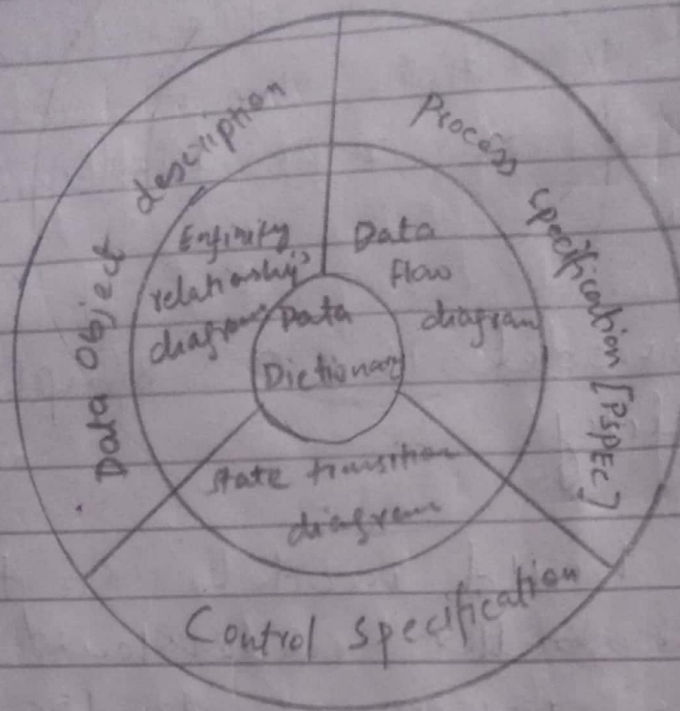 Data Object description
Process specification [PSPEC]
Enfinity
relationship
diagram
Data
flow
diagram
Data
Dictionary
state transition
diagram
Control specification